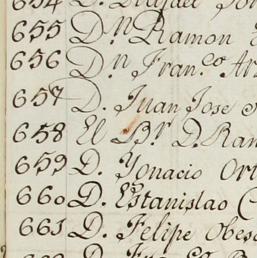 654 D. Rafael
655 D.ⁿ Ramon
656 D.ⁿ Fran.co
657 D. Juan Jose
658 El Br. D. Ram
659 D. Ygnacio Ort
660 D. Estanislao
661 D. Felipe Obes
D. Fra